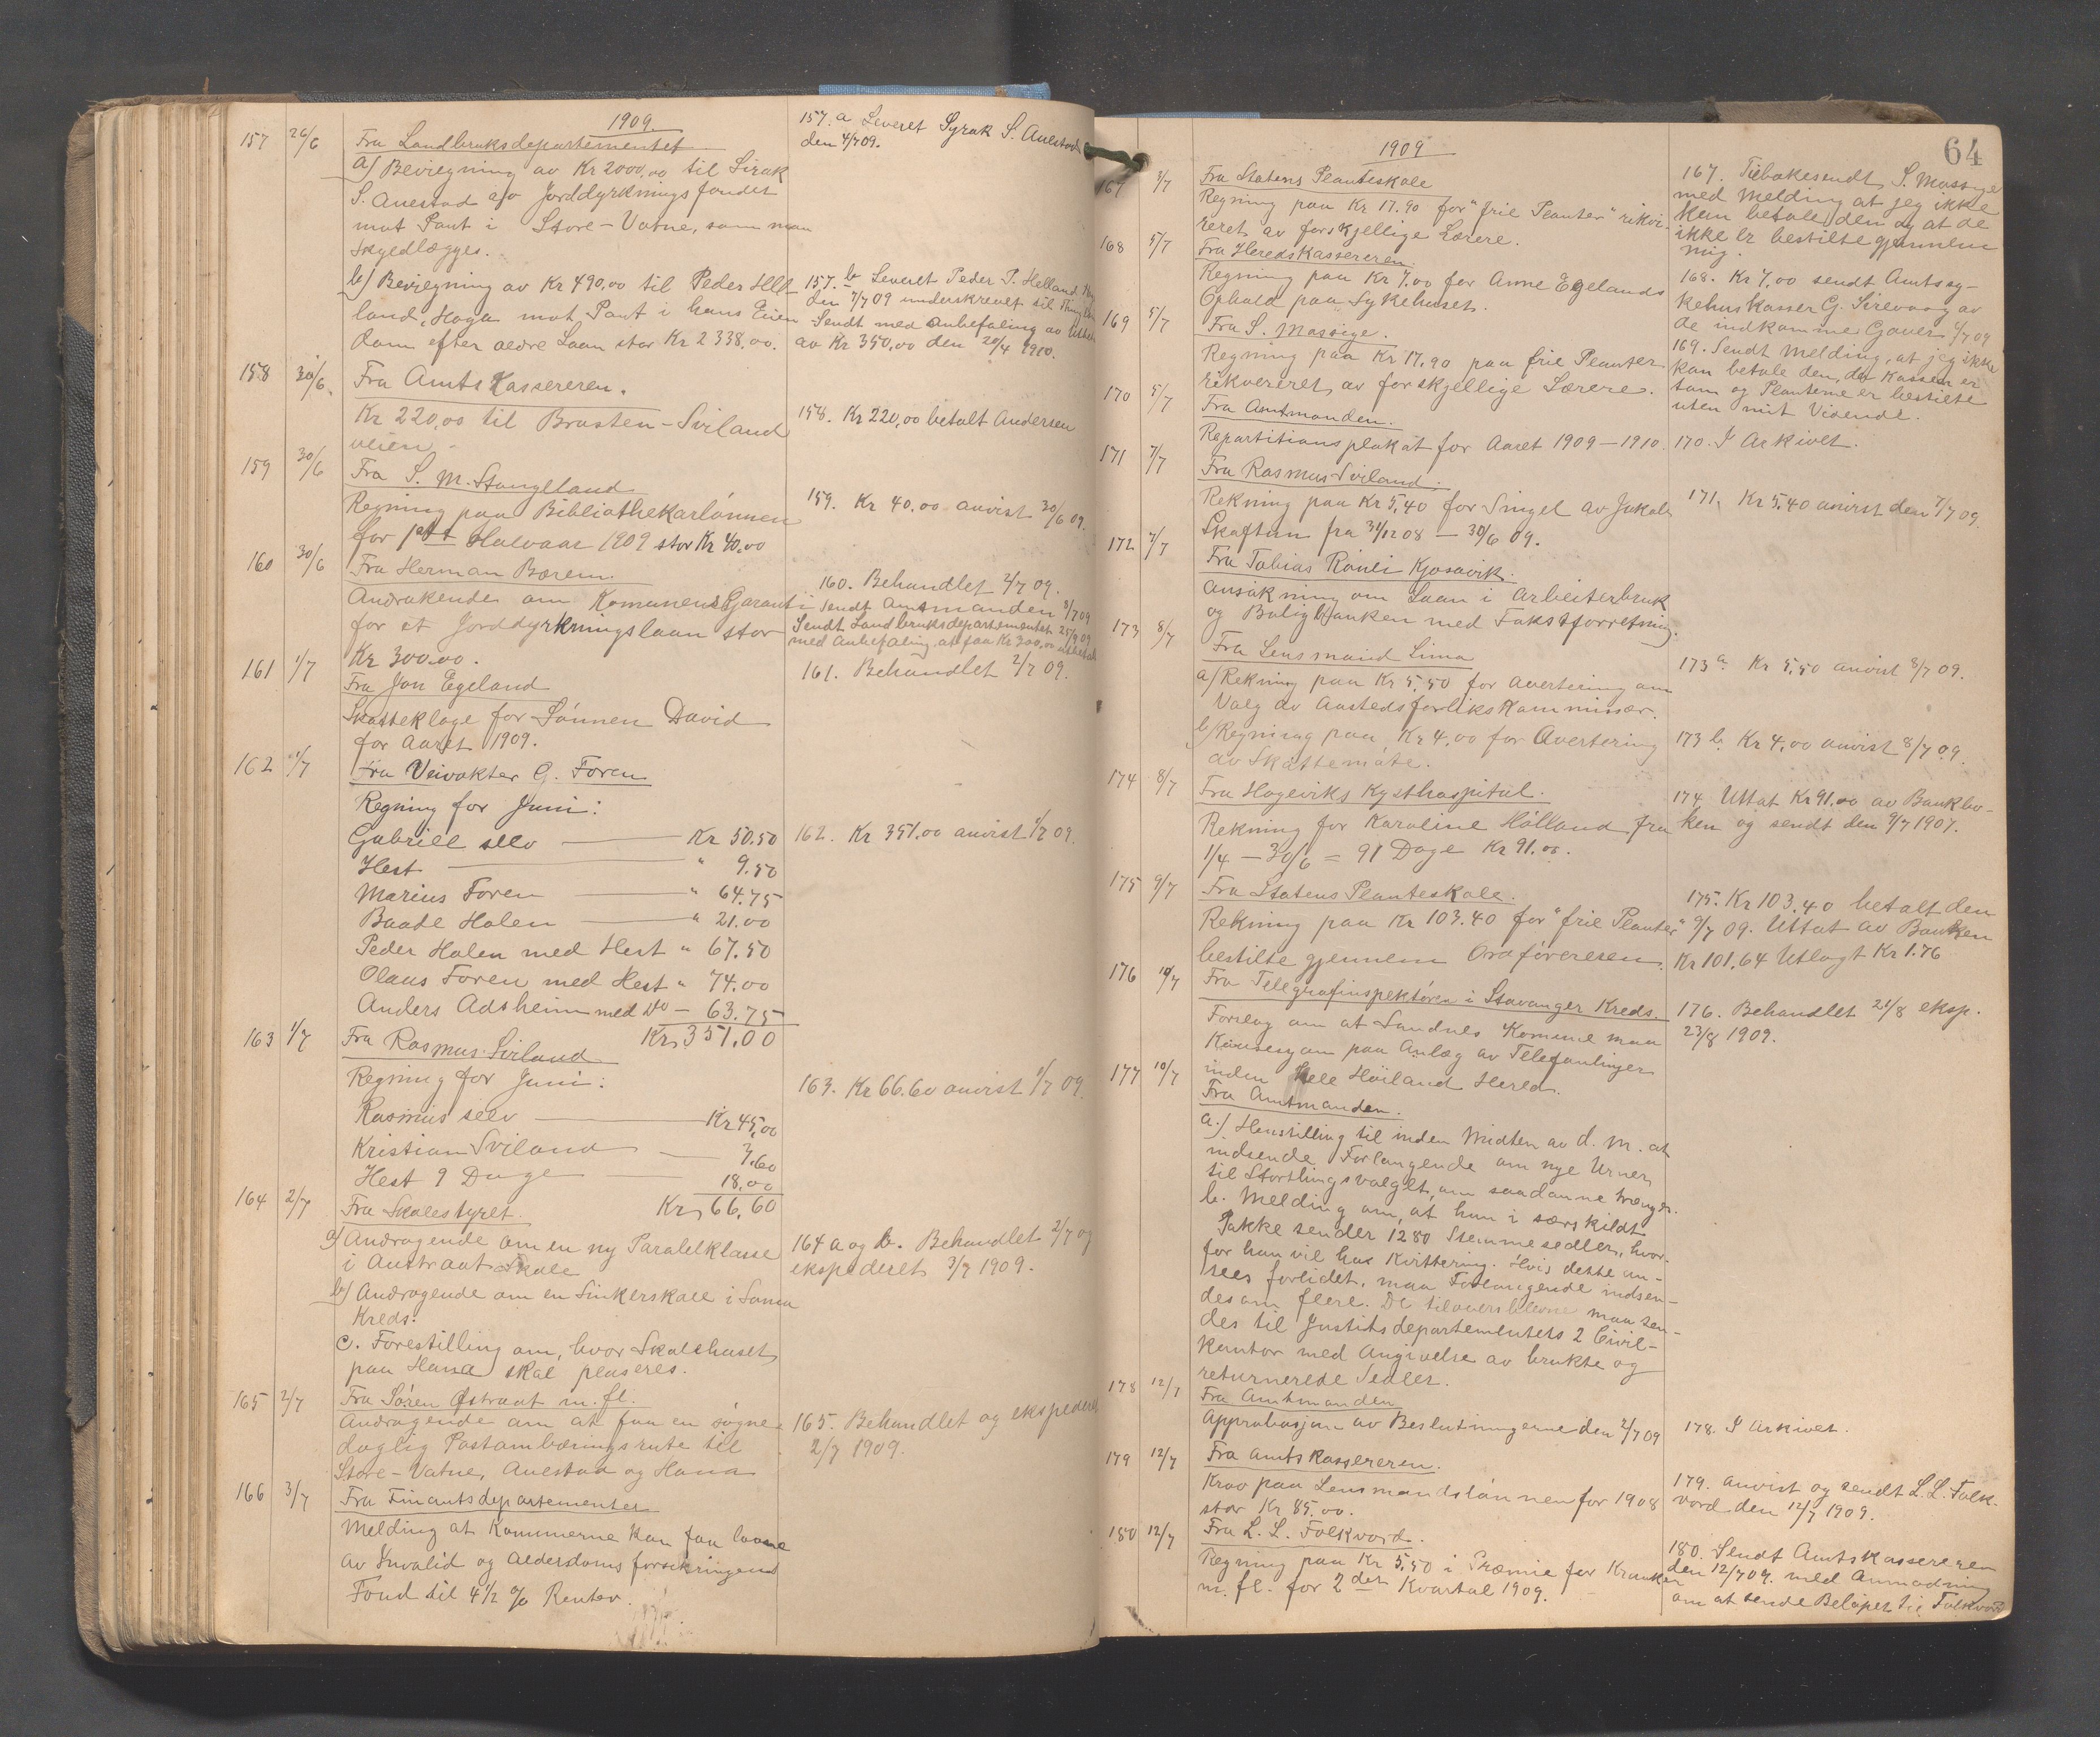 1909.
157 26/6 Fra Landbruksdepartementet
a) Bevirgning av Kr 2000,00 til Sirak
S. Auestad av Jorddyrkningsfondet
mot Pant i Store-Vatne, som maa
skyedlægges.
b) Bevirgning av Kr 490,00 til Peder Hel-
land, Hoga mot Pant i hans Eien
dom efter ældre Laan stor Kr 2338,00.
158 30/6. Fra Amtskassereren.
Kr 220,00 til Brasten-Sviland
veien.
159 30/6 Fra S. M. Stangeland
Regning paa Bibliothekarlønnen
for 1ste Halvaar 1909 stor Kr 40,00
160 30/6 Fra Herman Bærem.
Andrakende om Komunens Garanti
for et Jorddyrkningslaan stor
Kr 300.00.
161 1/7 Fra Jon Egeland
Skatteklage for Sønnen David
for Aaret 1909.
162 1/7 Fra Veivokter G. Foren
Regning for Juni:
Gabriel selv Kr 50.50
Hest " 9.50
Marius Foren " 64.75
Baade Halen " 21.00
Peder Halen med Hest " 67.50
Olaus Foren med Hest " 74.00
Anders Adsheim med Do - 63.75
Kr 351.00
163 1/7 Fra Rasmus Sviland
Regning for Juni:
Rasmus selv Kr 45,00
Kristian Sviland 3,60
Hest 9 Dage 18,00
Kr 66,60
164 2/7 Fra Skolestyret.
a) Andragende om en ny Paralelklasse
i Austraat Skole
b) Andragende om en Sinkerskole i Soma
Kreds.
c. Forestilling om, hvor Skolehuset
paa Hana skal plaseres.
165 2/7 Fra Søren Østraat m. fl.
Andragende om at faa en søgne-
daglig Postombæringsrute til
Store-Vatne, Auestad og Hana
166 3/7 Fra Finantsdepartementet
Melding at Kommunerne kan faa laane
av Invalid og Alderdoms forsikringens
Fond til 4 1/2 % Renter.
157. a Leveret Syrak S. Auestad
den 4/7 09.
157. b Leveret Peder P. Helland
den 7/7 09 underskrevet til
Sendt med Anbefaling av
av Kr 350,00 den 20/4 1910.
158. Kr 220,00 betalt Andersen
159. Kr 40.00 anvist 30/6 09.
160. Behandlet 2/7 09.
Sendt Amtmanden 8/7 09
Sendt Landbruksdepartementet 25/9 09
med Anbefaling, at faa Kr 300,00
161. Behandlet 2/7 09.
162. Kr 351.00 anvist 1/7 09.
163. Kr 66.60 anvist 1/7 09.
164 a og b. Behandlet 2/7 og
ekspederet 3/7 1909.
165. Behandlet og ekspederet
2/7 1909.
64
1909
167 3/7 Fra Statens Planteskole
Regning paa Kr 17.90 for "frie Planter" rikvi-
reret av forskjellige Lærere.
168 5/7 Fra Heredskassereren.
Regning paa Kr 7.00 for Anne Egelands
Ophold paa Sykehuset.
169 5/7 Fra S. Massige.
Regning paa Kr 17.90 paa frie Planter
rikvereret av forskjellige Lærere.
170 5/7 Fra Amtmanden.
Repartitionsplakat for Aaret 1909-1910.
171 7/7 Fra Rasmus Sviland.
Rekning paa Kr 5,40 for Singel av Jakob
Skaftun fra 31/12 08 - 30/6 09.
172 7/7 Fra Tobias Rønli Kjosavik.
Ansøkning om Laan i Arbeiterbruk
og Boligbanken med Takstforretning.
173 8/7 Fra Lensmand Lima
a) Rekning paa Kr 5,50 for Avertering om
Valg av Aastedsforlikskommissær.
b) Regning paa Kr 4,00 for Avertering
av Skattemøte.
174 8/7 Fra Hageviks Kysthospital.
Rekning for Karoline Hølland fra
1/4 - 30/6 = 91 Dage Kr 91.00.
175 9/7 Fra Statens Planteskole.
Rekning paa Kr 103.40 for "frie Planter"
bestilte gjennem Ordføreresen.
176 10/7 Fra Telegrafinspektøren i Stavanger Kreds.
Forslag om at Sandnes Komune maa
Konsesjon paa Anlæg av Telefonlinjer
inden hele Høiland Hered.
177 10/7 Fra Amtmanden.
a.) Henstilling til inden Midten av d. M. at
indsende Forlangende om nye Urner
til Stortingsvalget, om saadanne trænges.
b. Melding om, at han i særskildt
Pakke sender 1280 Stemmesedler, hvor-
for han vil ha Kvittering. Hvis dette an-
sees forlidet, maa Forlangende indsen-
des om flere. De tiloversblevne maa sen-
des til Justitsdepartementets 2 Civil-
kontor med Angivelse av brukte og
returnerede Sedler.
178 12/7 Fra Amtmanden
Approbasjon av Beslutningerne den 2/7 09
179 12/7 Fra Amtskassereren.
Krav paa Lensmandslønnen for 1908
stor Kr 85.00.
180 12/7 Fra L. L. Folkvord.
Regning paa Kr 5,50 i Præmie for Kranker
m. fl. for 2 det Kvartal 1909.
167. Tilbakesendt S. Massige
med Melding at jeg ikke
kan betale den og at de
ikke er bestilte gjennem
mig.
168. Kr 7,00 sendt Amtssy-
kehuskasser G. Sirevaag av
de indkomne Gaver 6/7 09
169. Sendt Melding, at jeg ikke
kan betale den, da Kassen er
tom og Planterne er bestilte
uten mit Vidende.
170. I Arkivet.
171. Kr 5.40 anvist den 7/7 09.
173 a. Kr 5,50 anvist 8/7 09.
173 b. Kr 4,00 anvist 8/7 09.
174 Uttat Kr 91.00 av Bankbo-
ken og sendt den 9/7 1909.
175. Kr 103,40 betalt den
9/7 09. Uttat av Banken
Kr 101,64 Utlagt Kr 1.76
176. Behandlet 21/8 eksp.
23/8 1909.
178. I Arkivet.
179. Anvist og sendt L. L. Folk-
vord den 12/7 1909.
180. Sendt Amtskassereren
den 12/7 09. med Anmodning
om at sende Beløpet til Folkvord